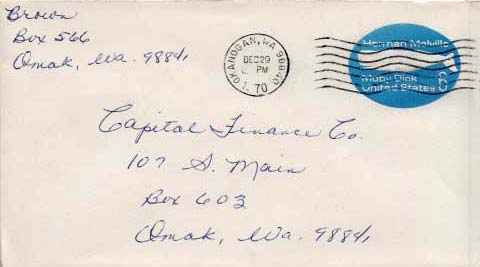 Brown
Box 566
Omak, Wa. 98841
OKANOGAN, WA 98840
DEC 29
PM
70
Herman Melville
Moby Dick
United States 6c
Capital Finance Co.
107 S. Main
Box 603
Omak, Wa. 98841